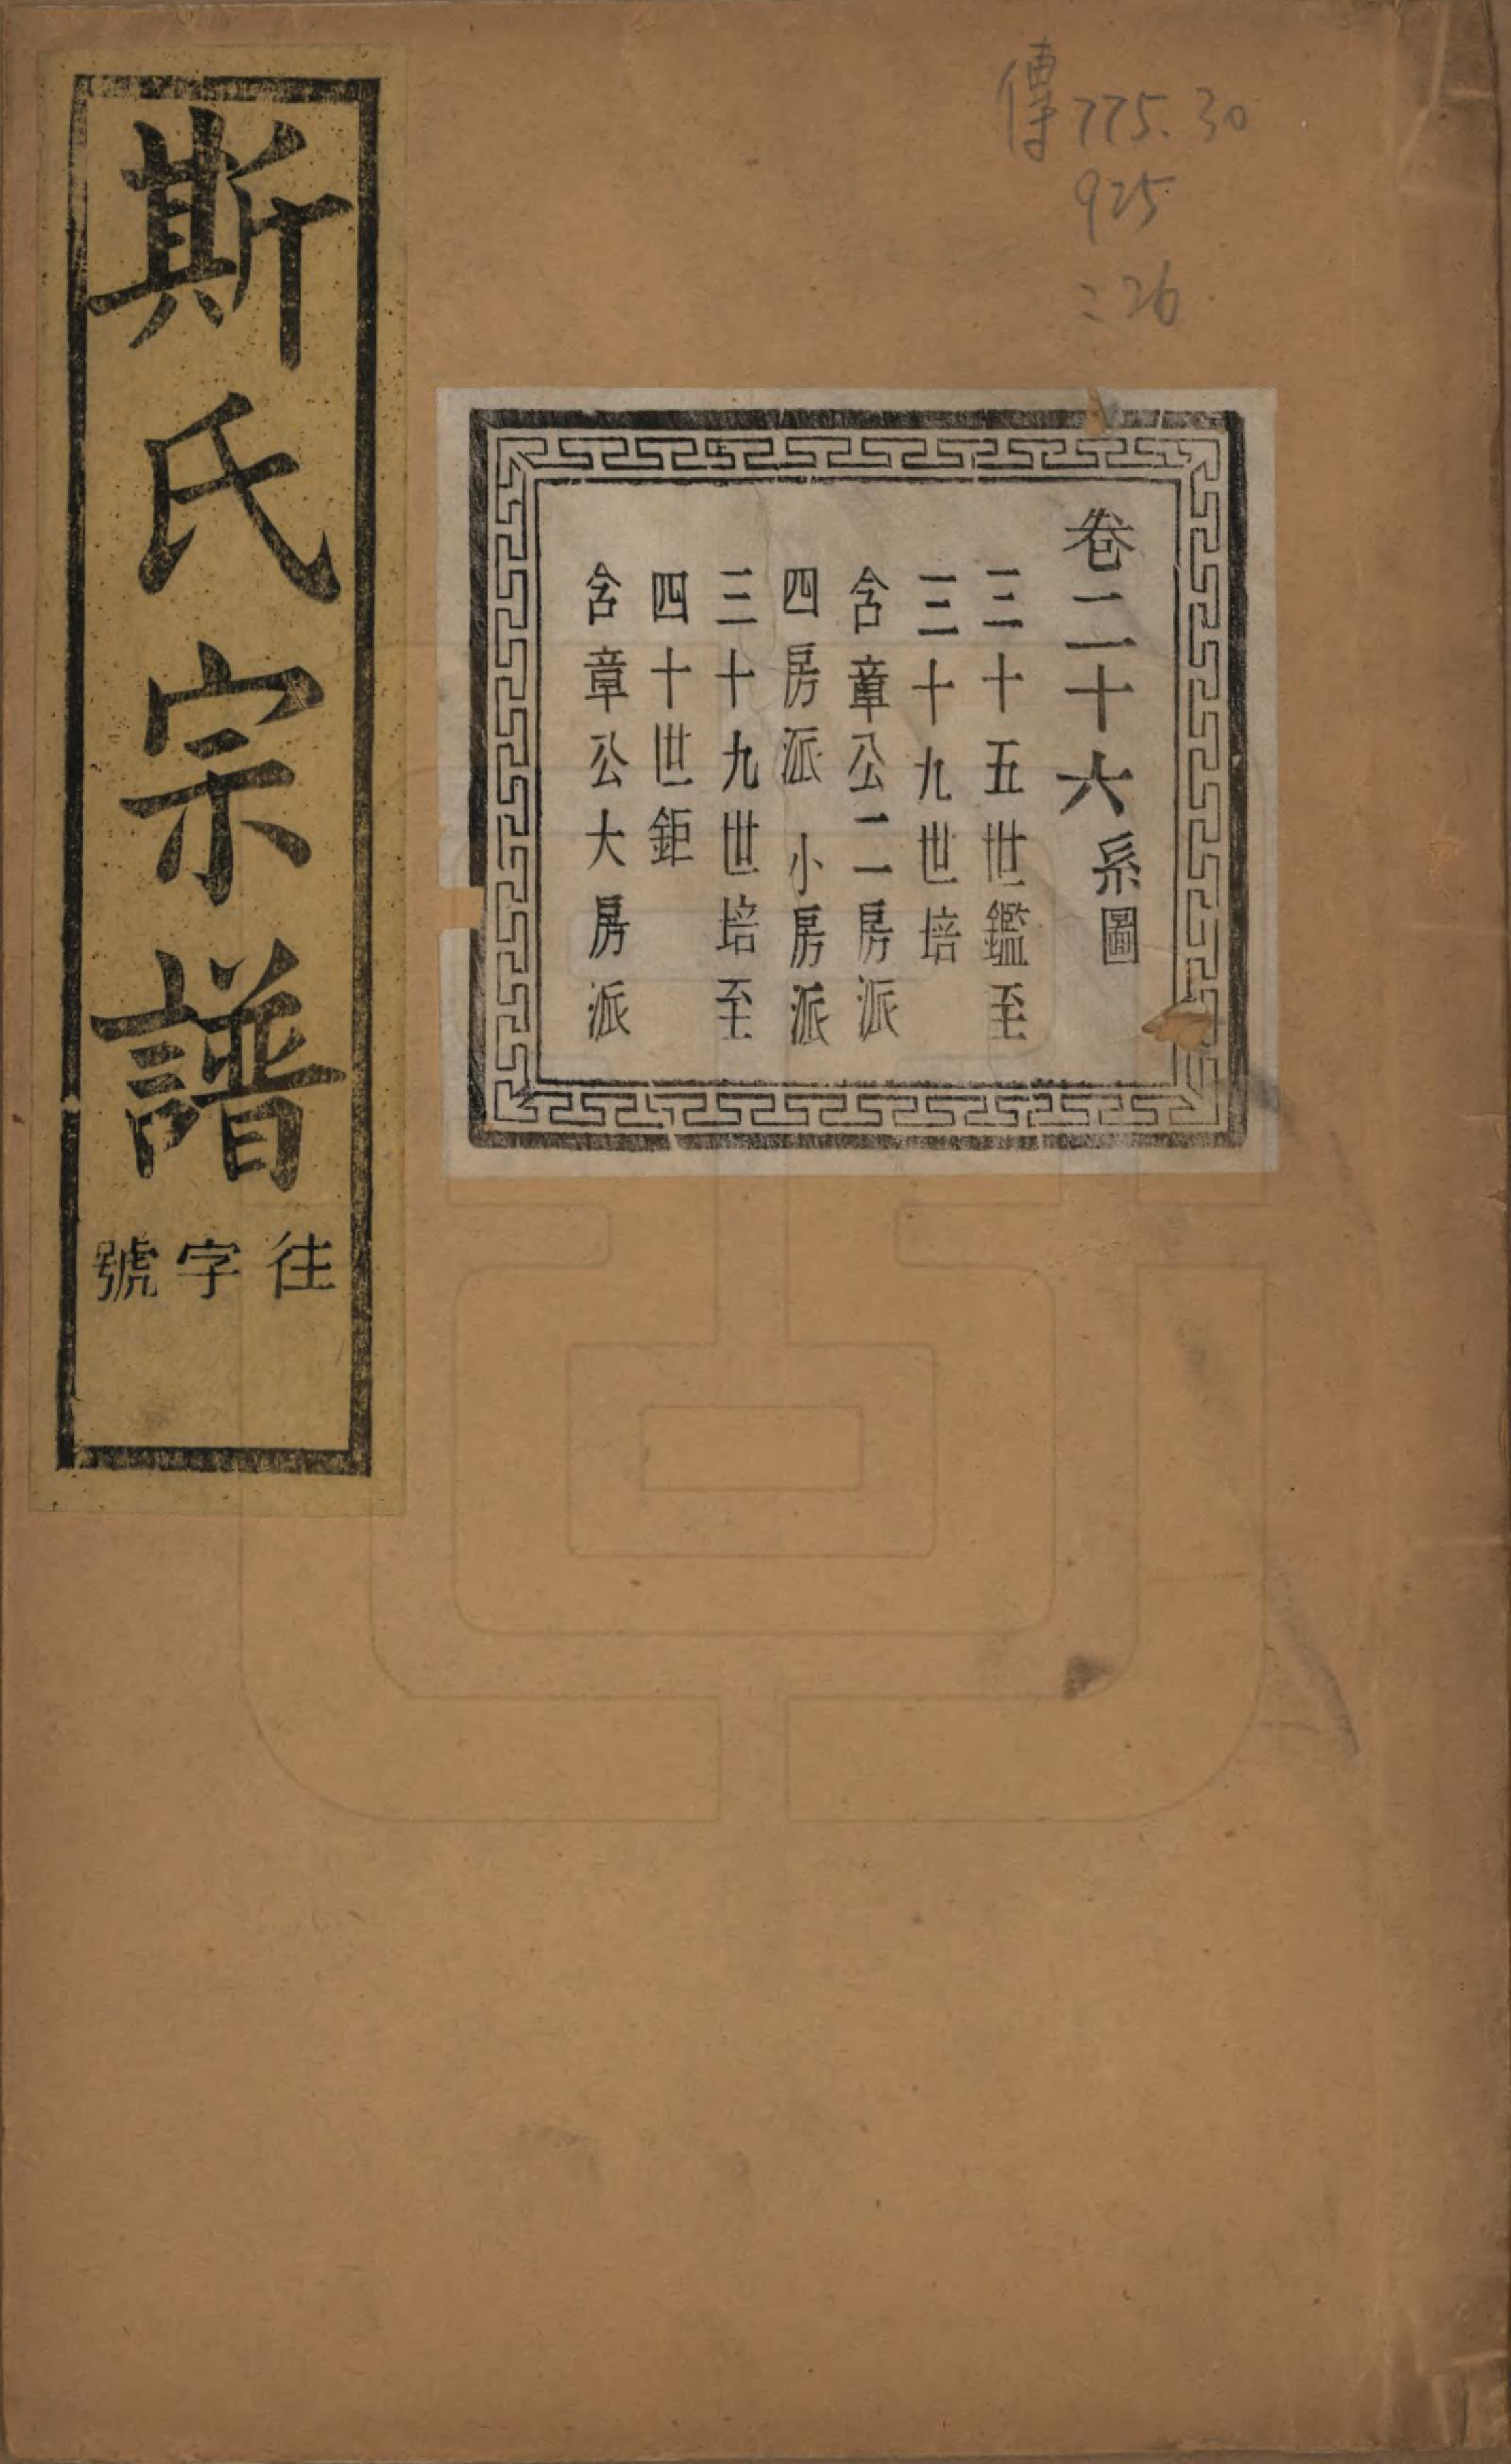 傳775.30
925
:26
斯氏宗譜
往字號
卷二十六系圖
三十五世鑑至
三十九世培
含章公二房派
四房派 小房派
三十九世培至
四十世鉅
含章公大房派